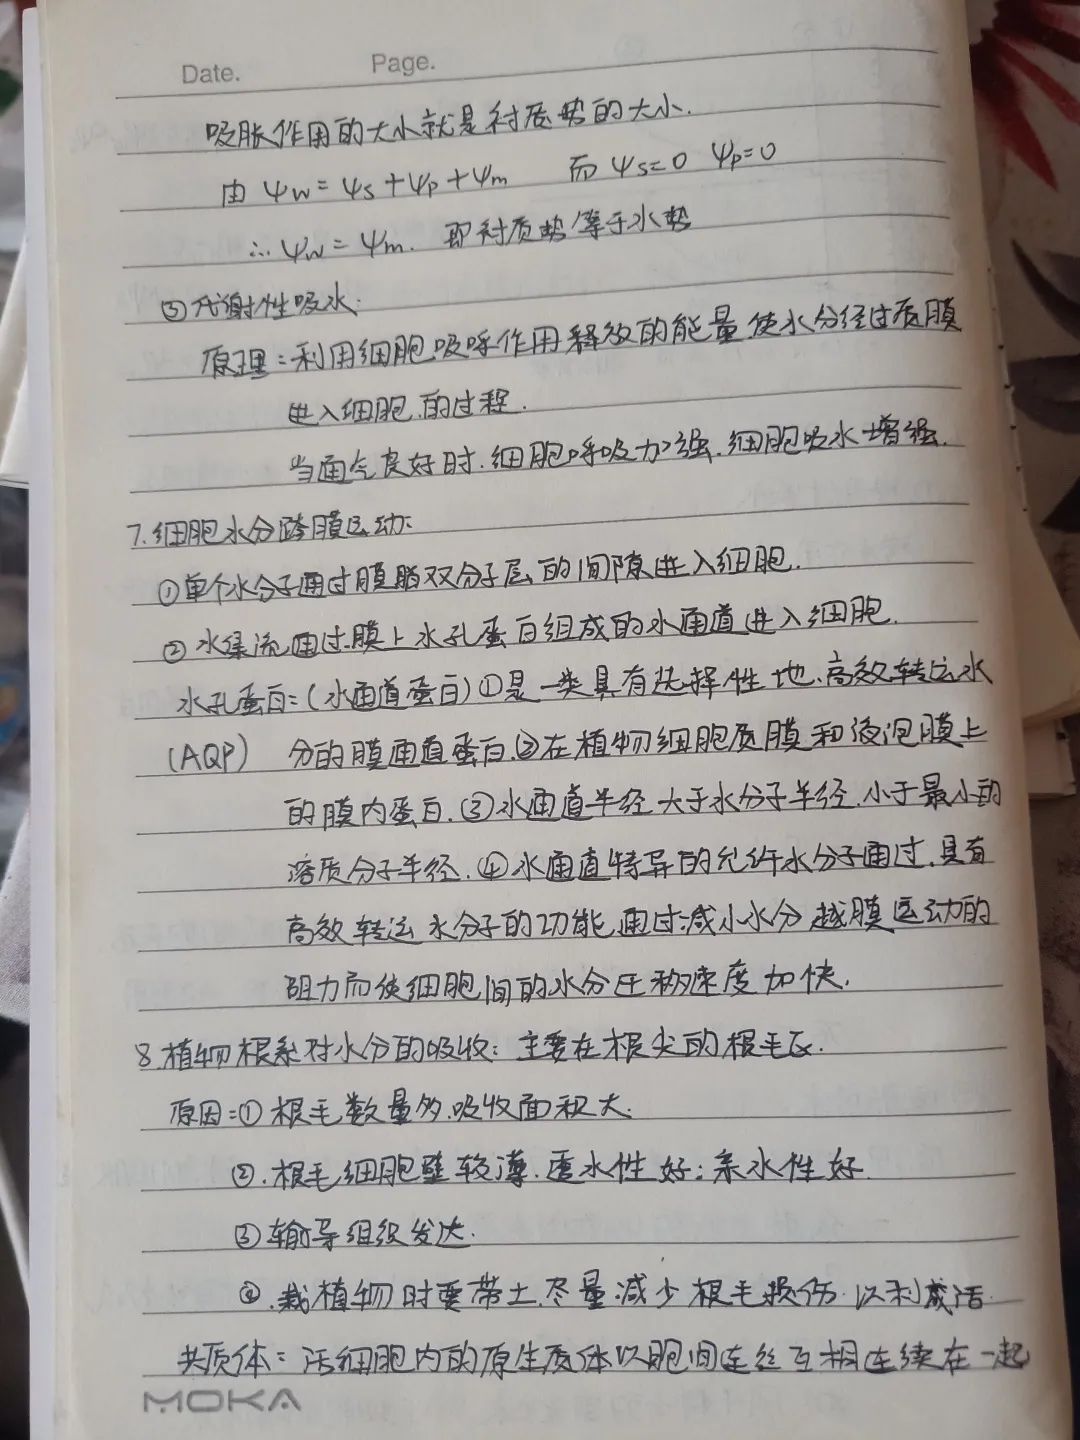 Date. Page.
吸胀作用的大小就是衬质势的大小.
由 Ψw=Ψs+Ψp+Ψm 而Ψs=0 Ψp=0
∴Ψw=Ψm. 即衬质势等于水势
③代谢性吸水:
原理:利用细胞呼吸作用释放的能量使水分经过质膜
进入细胞的过程.
当通气良好时.细胞呼吸加强.细胞吸水增强.
7.细胞水分跨膜运动:
①单个水分子通过膜脂双分子层的间隙进入细胞.
②水集流通过膜上水孔蛋白组成的水通道进入细胞.
水孔蛋白:(水通道蛋白)①是一类具有选择性地、高效转运水
(AQP) 分的膜通道蛋白.②在植物细胞质膜和液泡膜上
的膜内蛋白.③水通道半径大于水分子半径.小于最小的
溶质分子半径.④水通道特异的允许水分子通过.具有
高效转运水分子的功能.通过减小水分越膜运动的
阻力而使细胞间的水分迁移速度加快.
8.植物根系对水分的吸收:主要在根尖的根毛区.
原因:①根毛数量多.吸收面积大.
②.根毛细胞壁较薄.透水性好;亲水性好
③输导组织发达.
④.栽植物时要带土.尽量减少根毛损伤.以利成活.
共质体:活细胞内的原生质体以胞间连丝互相连续在一起
MOKA